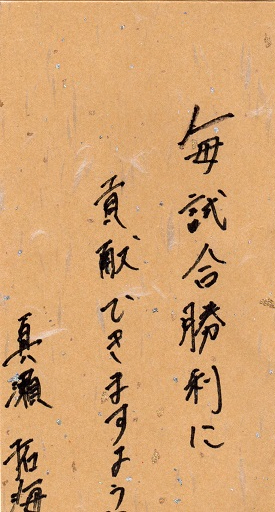 毎試合勝利に
貢献できますよう
真瀬 拓海